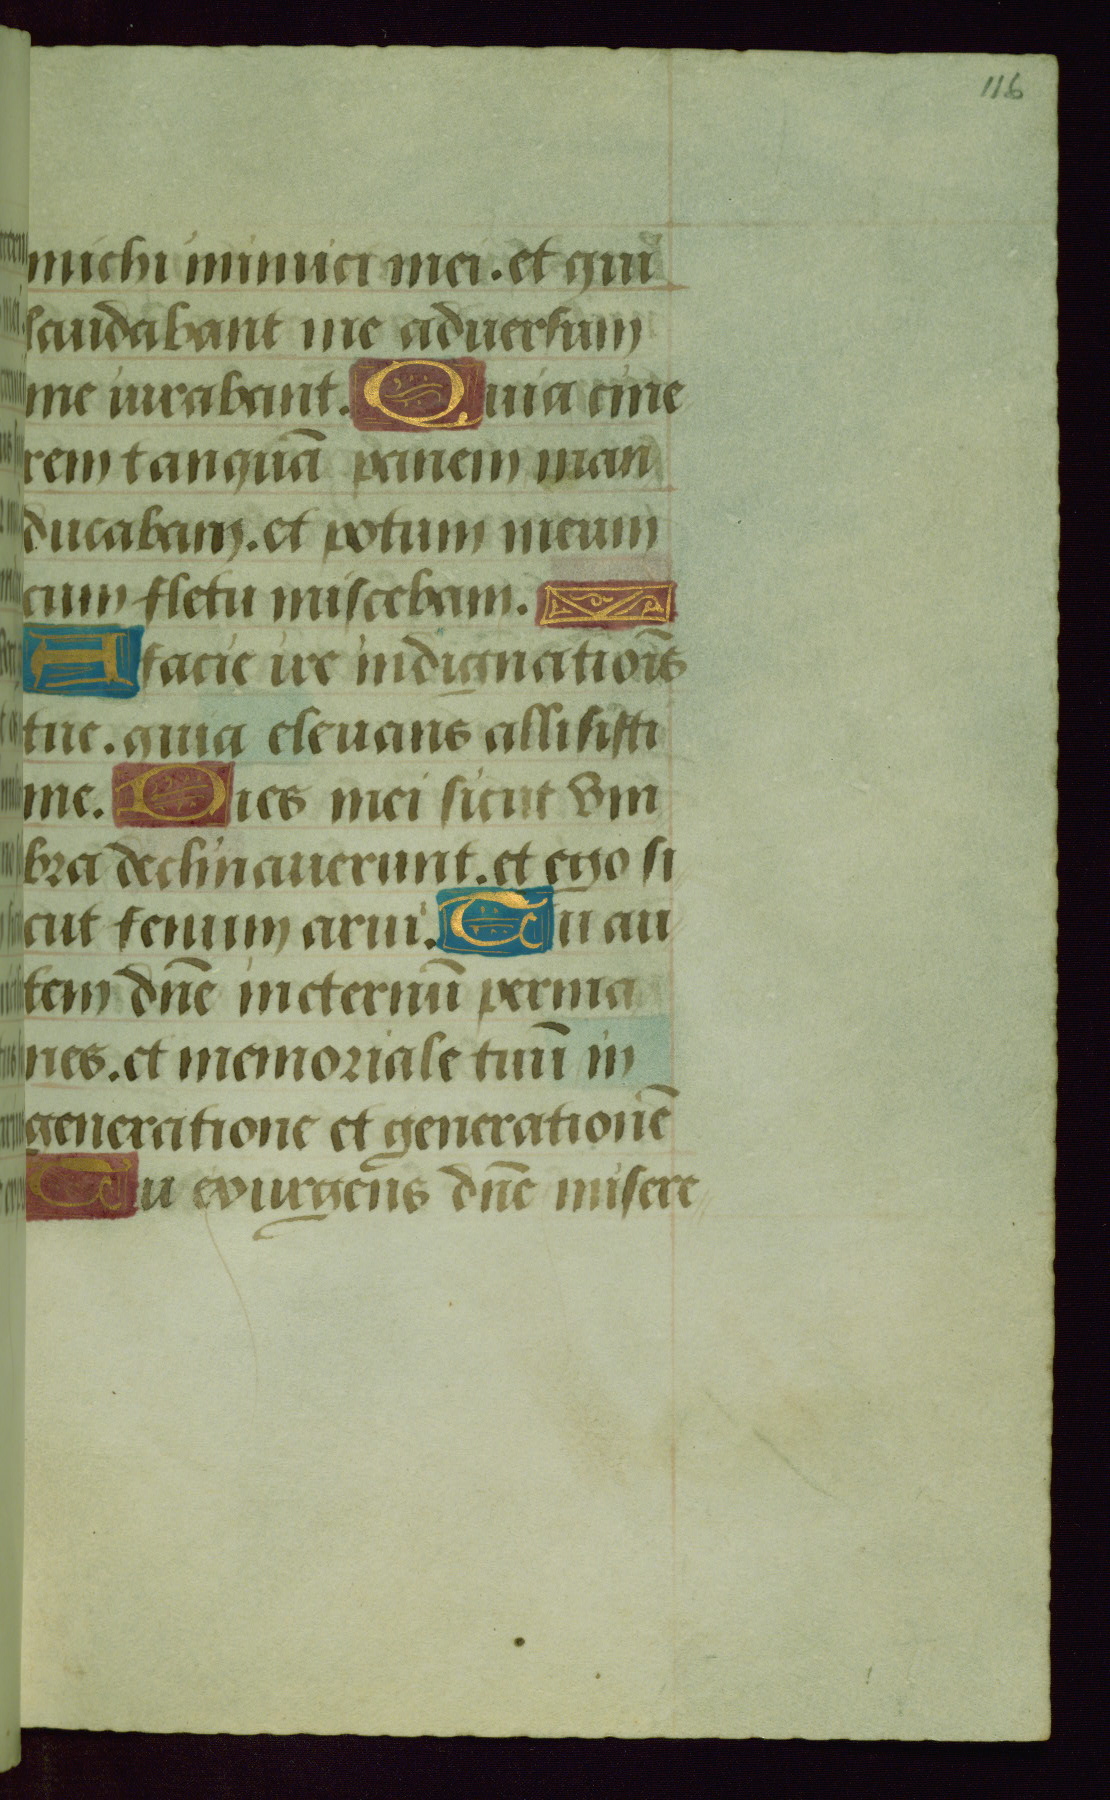 116
michi inimici mei. et qui
laudabant me adversum
me iurabant. Quia cine
rem tanquā panem man
ducabam. et potum meum
cum fletu miscebam.
A facie ire indignatiōis
tue. quia elevans allisisti
me. Dies mei sicut vm
bra declinaverunt. et ego si
cut fenum arui. Tu au
tem dn̄e ineternū perma
nes. et memoriale tuū in
generatione et generationē
Tu exurgens dn̄e misere